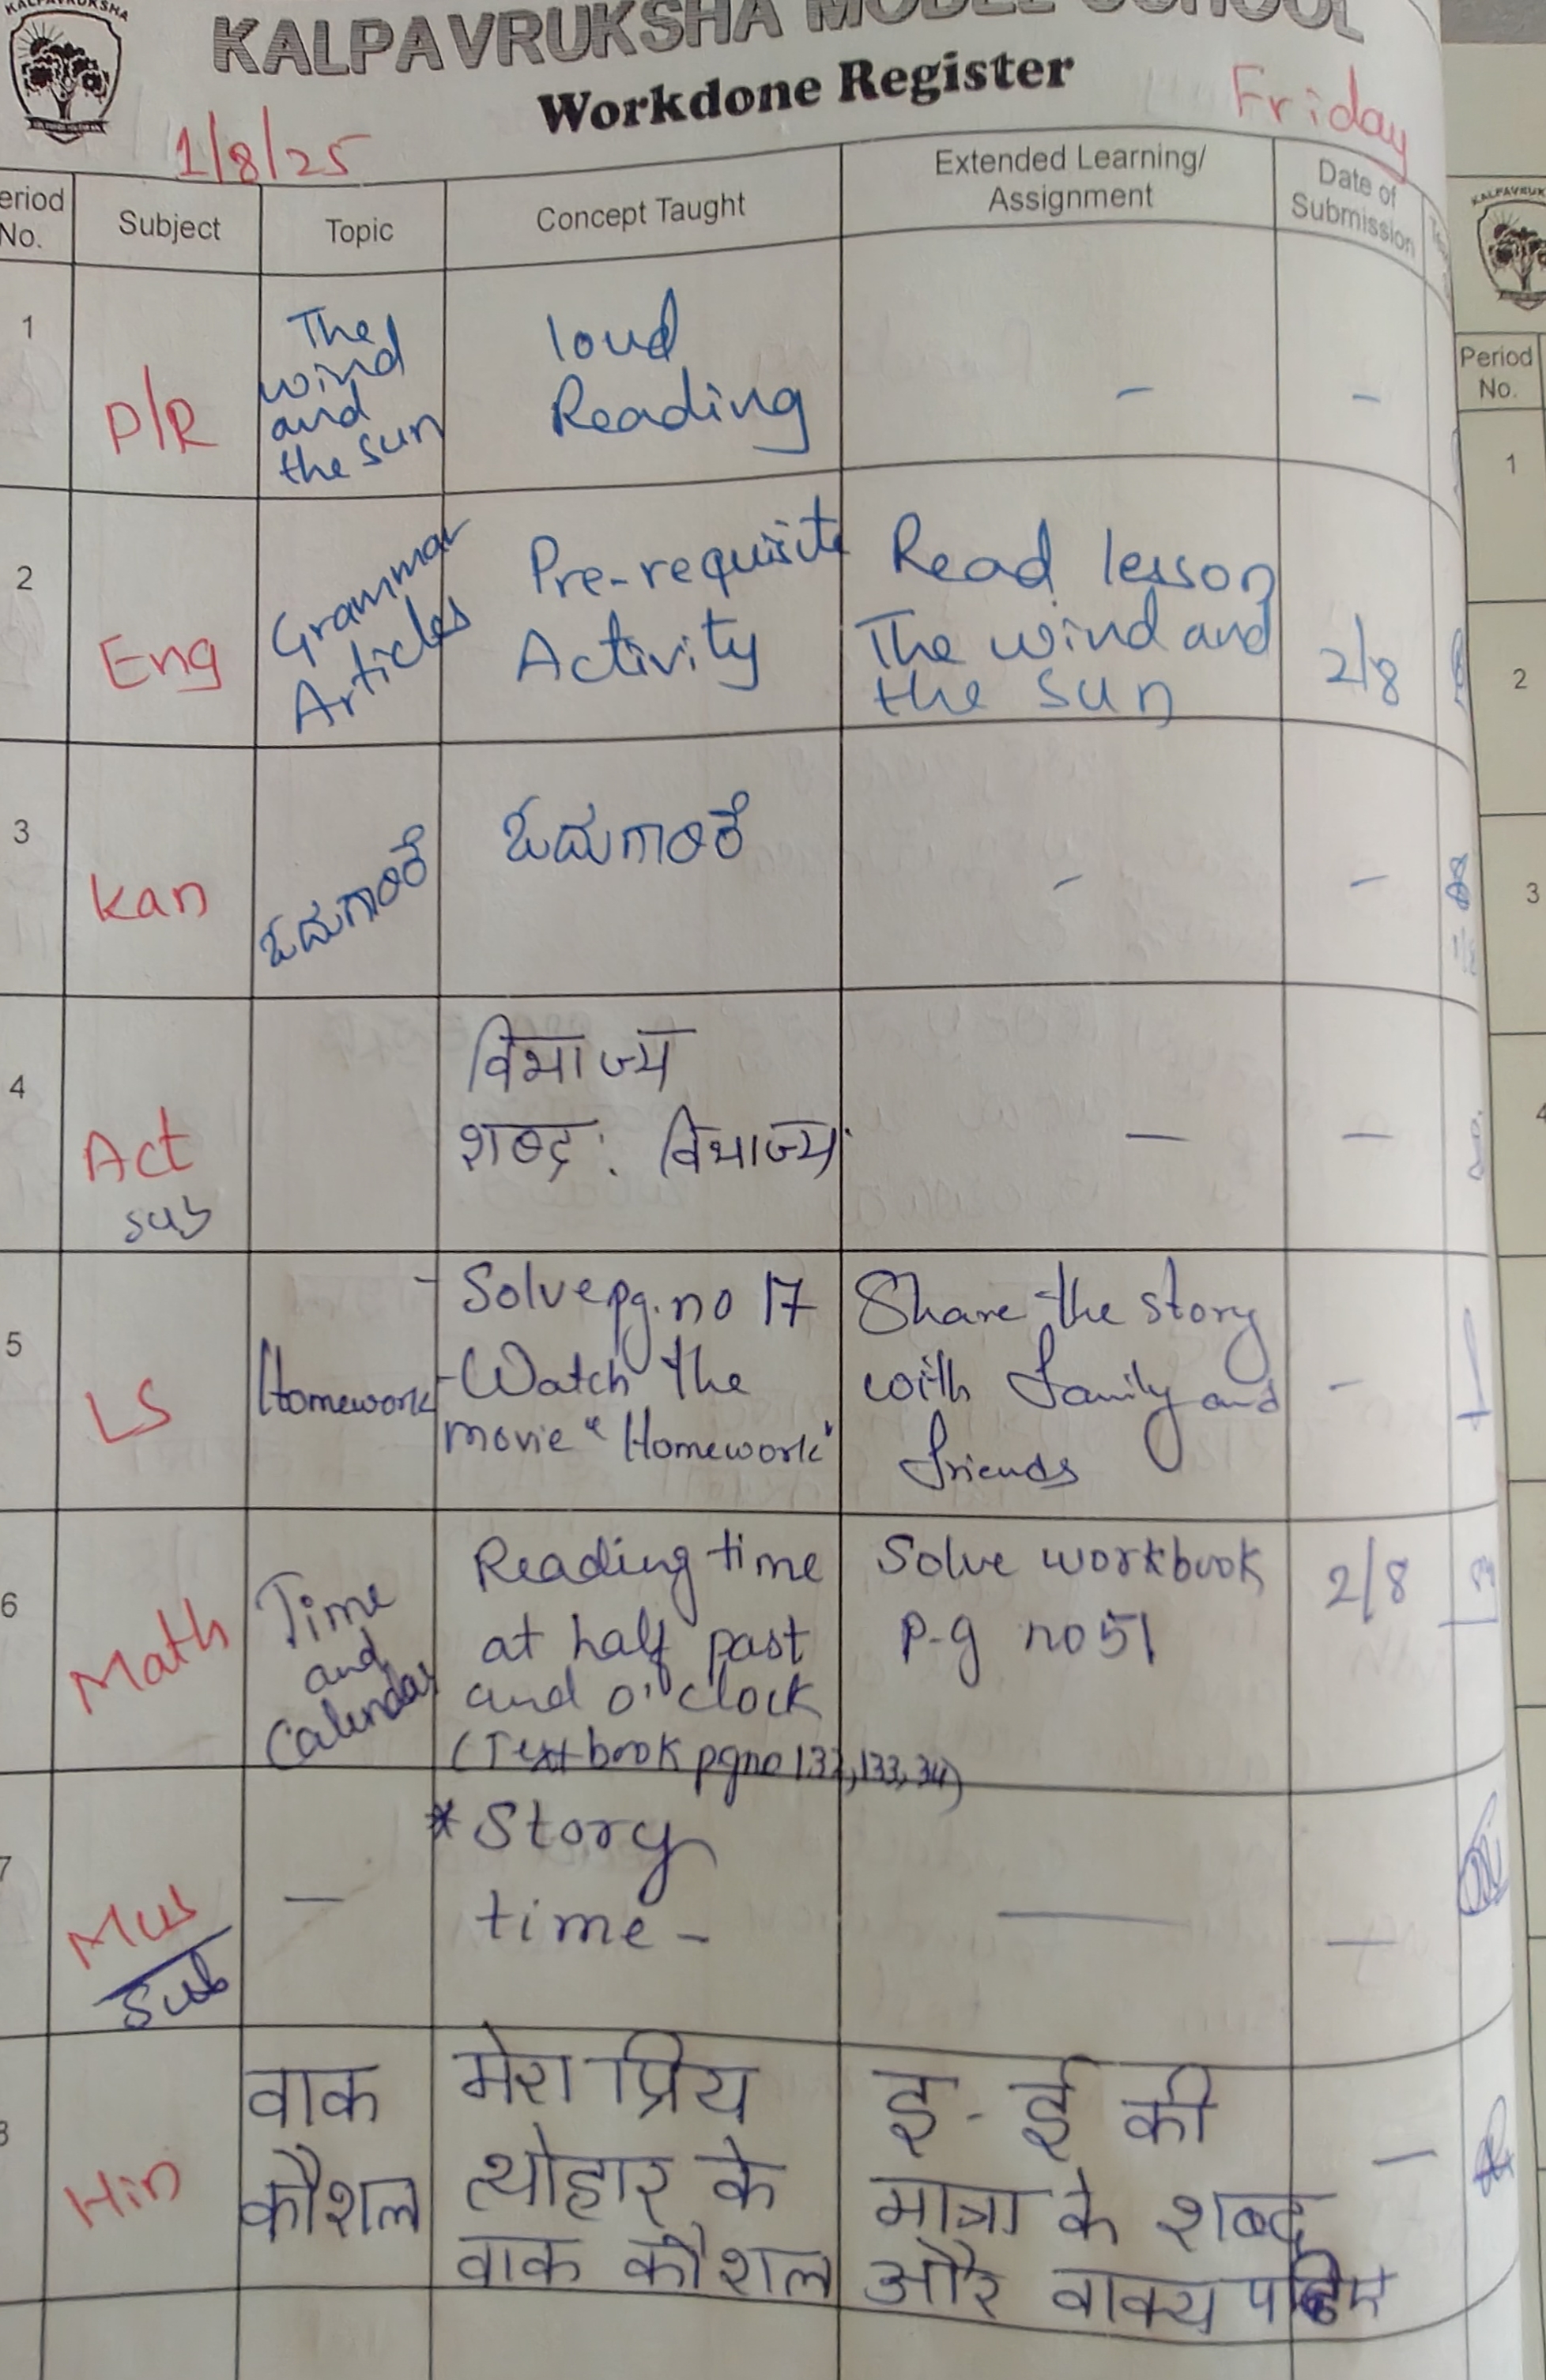 KALPAVRUKSHA
KALPAVRUKSHA MODEL SCHOOL
Workdone Register
1/8/25
Friday
eriod No.
Subject
Topic
Concept Taught
Extended Learning/
Assignment
Date of
Submission
1
P/R
The
wind
and
the sun
loud
Reading
-
-
2
Eng
Grammar
Articles
Pre-requisite
Activity
Read lesson
The wind and
the sun
2/8
3
Kan
ಓದುಗಾರಿಕೆ
ಓದುಗಾರಿಕೆ
-
-
4
Act
sub
विभाज्य
शब्द: विभाज्य
-
-
5
LS
Homework
- Solve pg. no 17
- Watch the
movie "Homework"
Share the story
with family and
friends
-
6
Math
Time
and
Calendar
Reading time
at half past
and o'clock
(Textbook pg no 132, 133, 34)
Solve workbook
p-g no 51
2/8
7
Mus
Sub
-
* Story
time -
-
-
Hin
वाक
कौशल
मेरा प्रिय
त्योहार के
वाक कौशल
इ - ई की
मात्रा के शब्द
और वाक्य पढिए
-
Period
No.
1
2
3
4